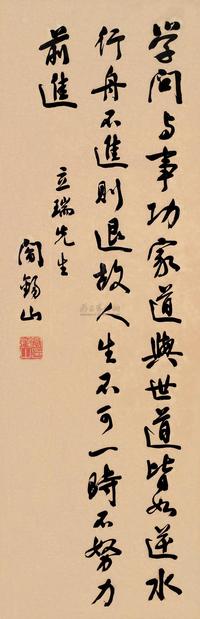 学问与事功家道與世道皆如逆水
行舟不進則退故人生不可一時不努力
前進
立瑞先生
閻錫山